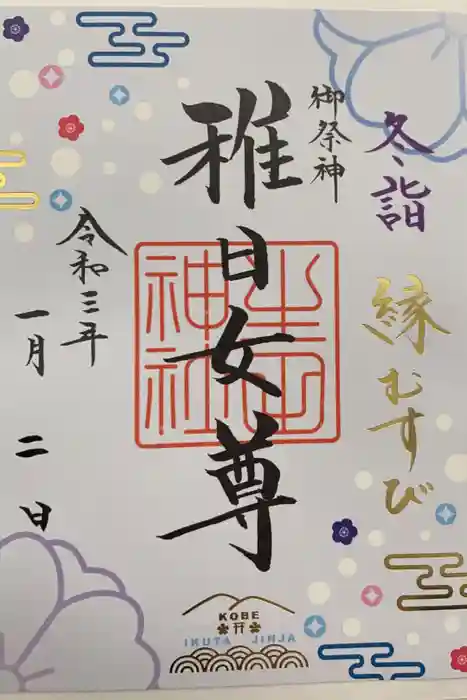 冬詣 縁むすび
御祭神
稚日女尊
生田神社
令和三年
一月二日
KOBE
IKUTA JINJA